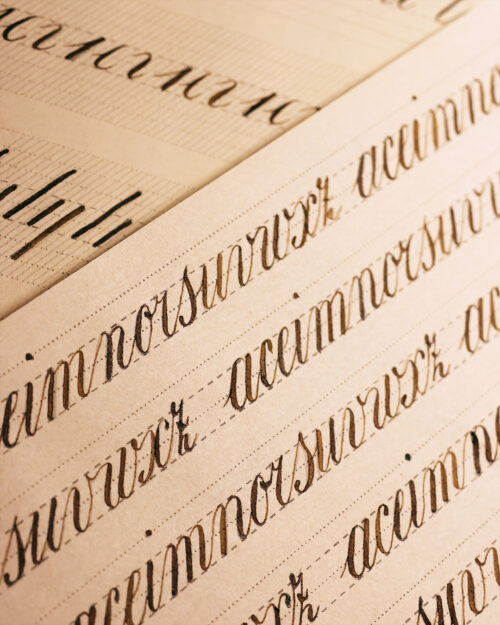 eimnorsuvwxz aceimno
suvwxz aceimnorsuv
aceimnorsuvwxz ac
xz aceimn
suv